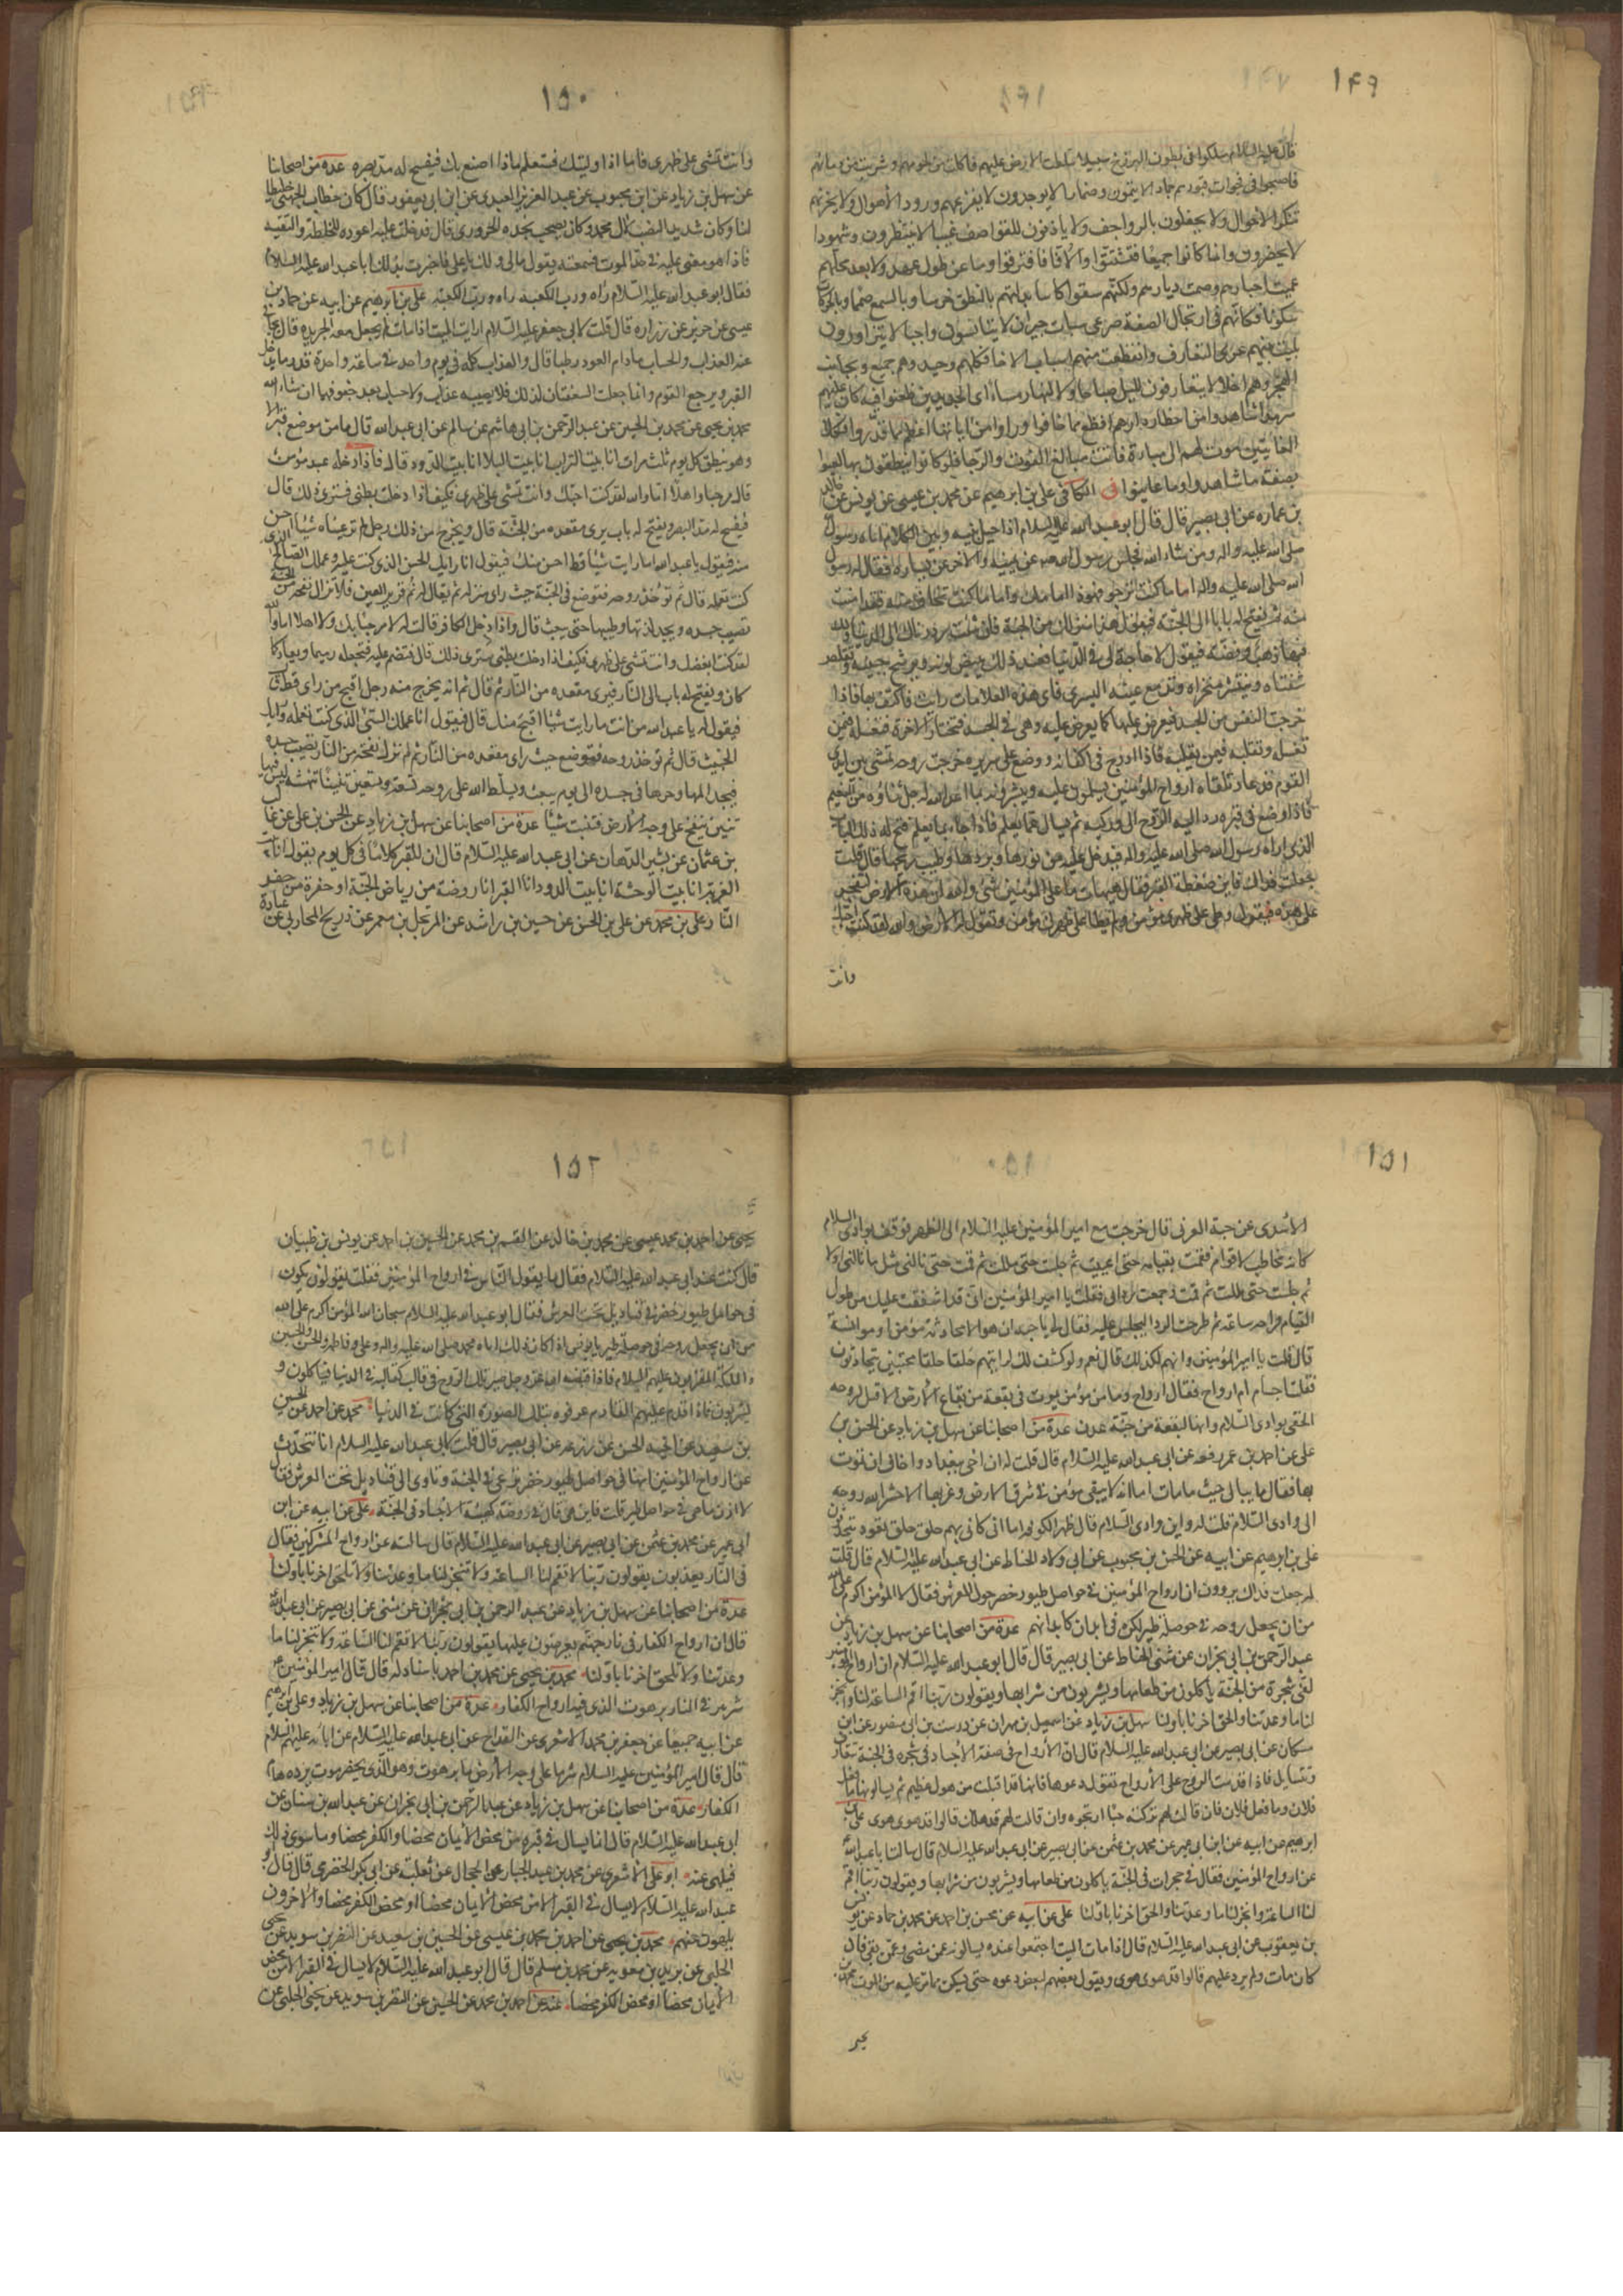 ١٤٩
قال عليه السلام سلكوا فى بطون البرزخ سبيلا سلطت الارض عليهم فاكلت من لحومهم وشربت من دمائهم
فاصبحوا فى فجوات قبورهم جمادا لا ينمون وضمارا لا يوجدون لا يفزعهم ورود الأهوال ولا يحزنهم
تنكر الاحوال ولا يحفلون بالرواجف ولا ياذنون للقواصف غيبا لا ينتظرون وشهودا
لا يحضرون وانما كانوا جميعا فتشتتوا وآلافا فافترقوا وما عن طول عهدهم ولا بعد محلهم
عميت اخبارهم وصمت ديارهم ولكنهم سقوا كاسا بدلتهم بالنطق خرسا وبالسمع صمما وبالحركات
سكونا فكانهم فى ارتجال الصفة صرعى سبات جيران لا يتانسون واحبا لا يتزاورون
بليت بينهم عرى التعارف وانقطعت منهم اسباب الاخا فكلهم وحيد وهم جميع وبجانب
الهجر وهم اخلا لا يتعارفون لليل صباحا ولا لنهار مساء اى الجديدين ظعنوا فيه كان عليهم
سرمدا شاهدوا من اخطار دارهم افظع مما خافوا وراوا من اياتها اعظم مما قدروا فكلا
الغايتين مدت لهم الى مباءة فاتت مبالغ الخوف والرجا فلو كانوا ينطقون بها لعيوا
بصفة ما شاهدوا وما عاينوا فى الكافى على بن ابراهيم عن محمد بن عيسى عن يونس عن خالد
بن عماره عن ابى بصير قال قال ابو عبد الله عليه السلام اذا حيل بينه وبين الكلام اتاه رسول الله
صلى الله عليه واله ومن شاء الله فجلس رسول الله ص عن يمينه والآخر عن يساره فقال له رسول
الله صلى الله عليه واله اما ما كنت ترجو فهوذا امامك واما ما كنت تخاف منه فقد امنت
منه ثم يفتح له بابا الى الجنة فيقول هذا منزلك من الجنة فان شئت رددناك الى الدنيا ولك
فيها ذهب وفضة فيقول لا حاجة لى فى الدنيا فعند ذلك يبيض لونه ويرشح جبينه وتقلص
شفتاه وينتشر منخراه وتدمع عينه اليسرى فاى هذه العلامات رايت فاكتف بها فاذا
خرجت النفس من الجسد فيعرض عليها كما يعرض عليه وهى فى الجسد فتختار الاخرة فتغسله فيمن
تغسله وتقلبه فيمن يقلبه فاذا ادرج فى اكفانه ووضع على سريره خرجت روحه تمشى بين ايدى
القوم قدما وتلقاه ارواح المؤمنين يسلمون عليه ويبشرونه بما اعد الله له جل ثناؤه من النعيم
فاذا وضع فى قبره رد اليه الروح الى وركيه ثم يسال عما يعلم فاذا جاء بما يعلم فتح له ذلك الباب
الذى اراه رسول الله صلى الله عليه واله فيدخل عليه من نورها وبردها وطيب ريحها قال قلت
جعلت فداك فاين ضغطة القبر فقال هيهات ما على المؤمنين شئ والله ان هذه الارض لتفتخر
على هذه فيقول وطى على ظهرى مؤمن ولم يطا على ظهرك مؤمن وتقول له الارض والله لقد كنت احبك
وانت
١٥٠
وانت تمشى على ظهرى فاما اذا وليتك فستعلم ماذا اصنع بك فيفسح له مد بصره عدة من اصحابنا
عن سهل بن زياد عن ابن محبوب عن عبد العزيز العبدى عن ابن ابى يعفور قال كان خطاب الجهنى خليطا
لنا وكان شديد النصب لآل محمد وكان يصحب نجدة الحرورى قال فدخلت عليه اعوده للخلطة والتقية
فاذا هو مغمى عليه فى حد الموت فسمعته يقول مالى ولك يا على فاخبرت بذلك ابا عبد الله عليه السلام
فقال ابو عبد الله عليه السلام راه ورب الكعبه راه ورب الكعبه على بن ابرهيم عن ابيه عن حماد بن
عيسى عن حريز عن زراره قال قلت لابى جعفر عليه السلام ارايت الميت اذا مات لم يجعل معه الجريده قال يتجافى
عنه العذاب والحساب مادام العود رطبا قال والعذاب كله فى يوم واحد فى ساعة واحدة قدر ما يدخل
القبر ويرجع القوم وانما جعلت السعفتان لذلك فلا يصيبه عذاب ولا حساب بعد جفوفهما ان شاء الله
محمد بن يحيى عن محمد بن الحسين عن عبد الرحمن بن ابى هاشم عن سالم عن ابى عبد الله قال ما من موضع قبر الا
وهو ينطق كل يوم ثلث مرات انا بيت التراب انا بيت البلا انا بيت الدود قال فاذا دخله عبد مؤمن
قال مرحبا واهلا اما والله لقد كنت احبك وانت تمشى على ظهرى فكيف اذا دخلت بطنى فسترى ذلك قال
فيفسح له مد البصر ويفتح له باب يرى مقعده من الجنة قال ويخرج من ذلك رجل لم تر عيناه شيئا احسن
منه فيقول يا عبد الله ما رايت شيئا قط احسن منك فيقول انا رايك الحسن الذى كنت عليه وعملك الصالح الذى
كنت تعمله قال ثم تؤخذ روحه فتوضع فى الجنة حيث راى منزله ثم يقال له نم قرير العين فلا تزال نفحة من الجنة
تصيب جسده ويجد لذتها وطيبها حتى يبعث قال واذا دخل الكافر قالت له لا مرحبا بك ولا اهلا اما والله
لقد كنت ابغضك وانت تمشى على ظهرى فكيف اذا دخلت بطنى سترى ذلك قال فتضم عليه فتجعله رميما ويعاد كما
كان ويفتح له باب الى النار فيرى مقعده من النار ثم قال ثم انه يخرج منه رجل اقبح من راى قط قال
فيقول له يا عبد الله من انت ما رايت شيئا اقبح منك قال فيقول انا عملك السئ الذى كنت تعمله ورايك
الخبيث قال ثم تؤخذ روحه فتوضع حيث راى مقعده من النار ثم لم تزل نفخة من النار تصيب جسده
فيجد المها وحرها فى جسده الى يوم يبعث ويسلط الله على روحه تسعة وتسعين تنينا تنهشه ليس فيها
تنين ينفخ على وجه الأرض فتنبت شيئا عدة من اصحابنا عن سهل بن زياد عن الحسن بن على عن غالب
بن عثمان عن بشير الدهان عن ابى عبد الله عليه السلام قال ان للقبر كلاما فى كل يوم يقول انا بيت
الغربة انا بيت الوحشة انا بيت الدود انا القبر انا روضة من رياض الجنة او حفرة من حفر
النار على بن محمد عن على بن الحسن عن حسين بن راشد عن المرتجل بن معمر عن ذريح المحاربى عن عبادة
١٥١
الأسدى عن حبة العرنى قال خرجت مع امير المؤمنين عليه السلام الى الظهر فوقف بوادى السلام
كانه مخاطب لاقوام فقمت بقيامه حتى اعييت ثم جلست حتى مللت ثم قمت حتى نالنى مثل ما نالنى اولا
ثم جلست حتى مللت ثم قمت وجمعت ردائى فقلت يا امير المؤمنين انى قد اشفقت عليك من طول
القيام فراحة ساعة ثم طرحت الردا ليجلس عليه فقال لى يا حبة ان هو الا محادثة مؤمن او موانسة
قال قلت يا امير المؤمنين وانهم لكذلك قال نعم ولو كشف لك لرايتهم حلقا حلقا محتبين يتحادثون
فقلت اجسام ام ارواح فقال ارواح وما من مؤمن يموت فى بقعة من بقاع الأرض الا قيل لروحه
الحقى بوادى السلام وانها لبقعة من جنة عدن عدة من اصحابنا عن سهل بن زياد عن الحسن بن
على عن احمد بن عمر رفعه عن ابى عبد الله عليه السلام قال قلت له ان اخى ببغداد واخاف ان يموت
بها فقال ما يبالى حيث ما مات اما انه لا يبقى مؤمن فى شرق الارض وغربها الا حشر الله روحه
الى وادى السلام قلت له واين وادى السلام قال ظهر الكوفه اما انى كانى بهم حلق حلق قعود يتحدثون
على بن ابرهيم عن ابيه عن الحسن بن محبوب عن ابى ولاد الحناط عن ابى عبد الله عليه السلام قال قلت
له جعلت فداك يروون ان ارواح المؤمنين فى حواصل طيور خضر حول العرش فقال لا المؤمن اكرم على الله
من ان يجعل روحه فى حوصلة طير لكن فى ابدان كابدانهم عدة من اصحابنا عن سهل بن زياد عن
عبد الرحمن بن ابى نجران عن مثنى الحناط عن ابى بصير قال قال ابو عبد الله عليه السلام ان ارواح المؤمنين
لفى شجرة من الجنة ياكلون من طعامها ويشربون من شرابها ويقولون ربنا اقم الساعة لنا وانجز
لنا ما وعدتنا والحق اخرنا باولنا سهل بن زياد عن اسمعيل بن مهران عن درست بن ابى منصور عن ابن
مسكان عن ابى بصير عن ابى عبد الله عليه السلام قال ان الأرواح فى صفة الأجساد فى شجرة فى الجنة تعارف
وتسايل فاذا قدمت الروح على الأرواح تقول دعوها فانها قد اقبلت من هول عظيم ثم يسالونها ما فعل
فلان وما فعل فلان فان قالت لهم تركته حيا ارتجوه وان قالت لهم قد هلك قالوا قد هوى هوى على بن
ابرهيم عن ابيه عن ابن ابى عمير عن محمد بن عثمن عن ابى بصير عن ابى عبد الله عليه السلام قال سالت ابا عبد الله
عن ارواح المؤمنين فقال فى حجرات فى الجنة ياكلون من طعامها ويشربون من شرابها ويقولون ربنا اقم
لنا الساعة وانجز لنا ما وعدتنا والحق اخرنا باولنا على عن ابيه عن محسن بن احمد عن محمد بن حماد عن يونس
بن يعقوب عن ابى عبد الله عليه السلام قال اذا مات الميت اجتمعوا عنده يسالونه عمن مضى وعمن بقى فان
كان مات ولم يرد عليهم قالوا قد هوى هوى ويقول بعضهم لبعض دعوه حتى يسكن مما مر عليه من الموت محمد بن
يحيى
١٥٢
يحيى عن احمد بن محمد عيسى عن محمد بن خالد عن القسم بن محمد عن الحسين بن احمد عن يونس بن ظبيان
قال كنت عند ابى عبد الله عليه السلام فقال ما يقول الناس فى ارواح المؤمنين فقلت يقولون يكون
فى حواصل طيور خضر فى قناديل تحت العرش فقال ابو عبد الله عليه السلام سبحان الله المؤمن اكرم على الله
من ان يجعل روحه فى حوصلة طير يا يونس اذا كان ذلك اتاه محمد صلى الله عليه واله وعلى وفاطمه والحسن والحسين
والملئكة المقربون عليهم السلام فاذا قبضه الله عز وجل صير تلك الروح فى قالب كقالبه فى الدنيا فياكلون و
يشربون فاذا قدم عليهم القادم عرفوه بتلك الصورة التى كانت فى الدنيا محمد عن احمد عن الحسين
بن سعيد عن اخيه الحسن عن زرعه عن ابى بصير قال قلت لابى عبد الله عليه السلام انا نتحدث
عن ارواح المؤمنين انها فى حواصل طيور خضر ترعى فى الجنة وتاوى الى قناديل تحت العرش فقال
لا اذن ما هى فى حواصل طير قلت فاين هى قال فى روضة كهيئة الاجساد فى الجنة على عن ابيه عن ابن
ابى عمير عن محمد بن عثمن عن ابى بصير عن ابى عبد الله عليه السلام قال سالته عن ارواح المشركين فقال
فى النار يعذبون يقولون ربنا لا تقم لنا الساعة ولا تنجز لنا ما وعدتنا ولا تلحق اخرنا باولنا
عدة من اصحابنا عن سهل بن زياد عن عبد الرحمن بن ابى نجران عن مثنى عن ابى بصير عن ابى عبد الله
قال ان ارواح الكفار فى نار جهنم يعرضون عليها يقولون ربنا لا تقم لنا الساعة ولا تنجز لنا ما
وعدتنا ولا تلحق اخرنا باولنا محمد بن يحيى عن محمد بن احمد باسناد له قال قال امير المؤمنين ع
شر بئر فى النار برهوت الذى فيه ارواح الكفار عدة من اصحابنا عن سهل بن زياد وعلى بن ابرهيم
عن ابيه جميعا عن جعفر بن محمد الاشعرى عن القداح عن ابى عبد الله عليه السلام عن ابائه عليهم السلام
قال قال امير المؤمنين عليه السلام شر ما على وجه الأرض ماء برهوت وهو الذى بحضرموت يرده هام
الكفار عدة من اصحابنا عن سهل بن زياد عن عبد الرحمن بن ابى نجران عن عبد الله بن سنان عن
ابى عبد الله عليه السلام قال انما يسال فى قبره من محض الأيمان محضا والكفر محضا وما سوى ذلك
فيلهى عنه ابو على الاشعرى عن محمد بن عبد الجبار عن الحجال عن ثعلبة عن ابى بكر الحضرمى قال قال ابو
عبد الله عليه السلام لا يسال فى القبر الا من محض الأيمان محضا او محض الكفر محضا والآخرون
يلهون عنهم محمد بن يحيى عن احمد بن محمد بن عيسى عن الحسين بن سعيد عن النضر بن سويد عن يحيى
الحلبى عن بريد بن معويه عن محمد بن مسلم قال قال ابو عبد الله عليه السلام لا يسال فى القبر الا من محض
الأيمان محضا او محض الكفر محضا عنه عن احمد بن محمد عن الحسين عن النضر بن سويد عن يحيى الحلبى عن